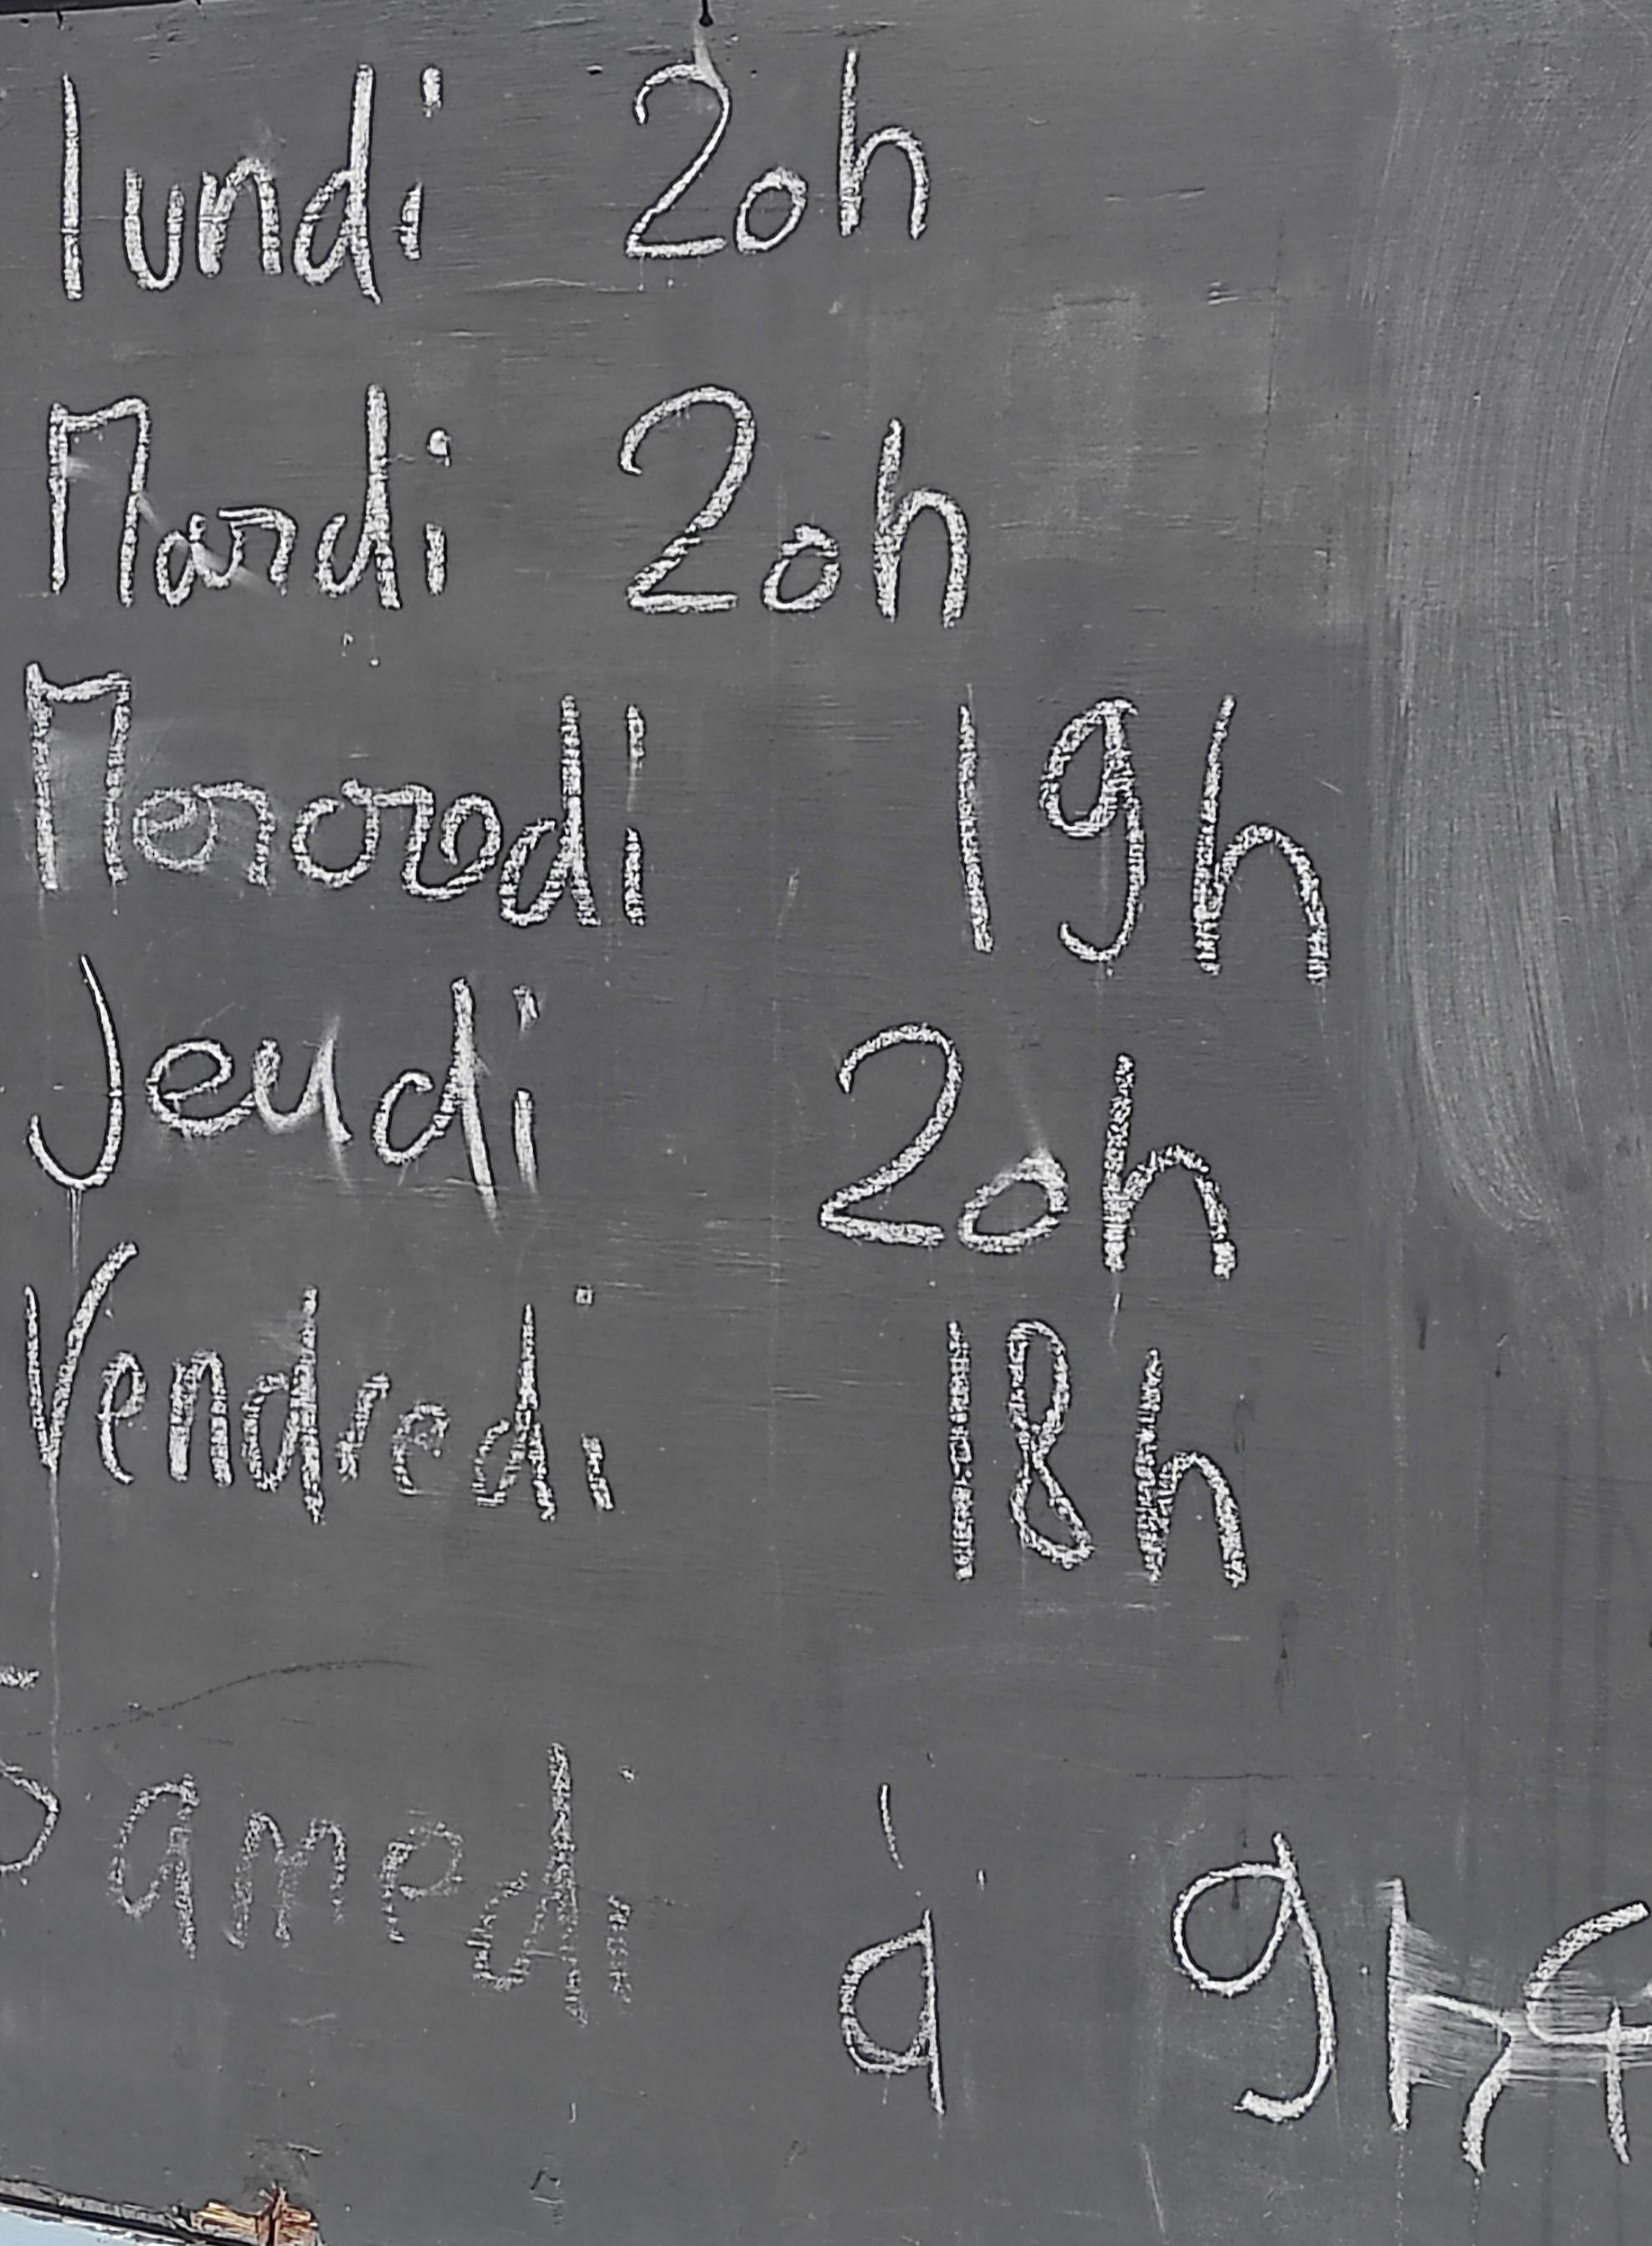 lundi 20h
Mardi 20h
Mercredi 19h
Jeudi 20h
Vendredi 18h
Samedi à 9h